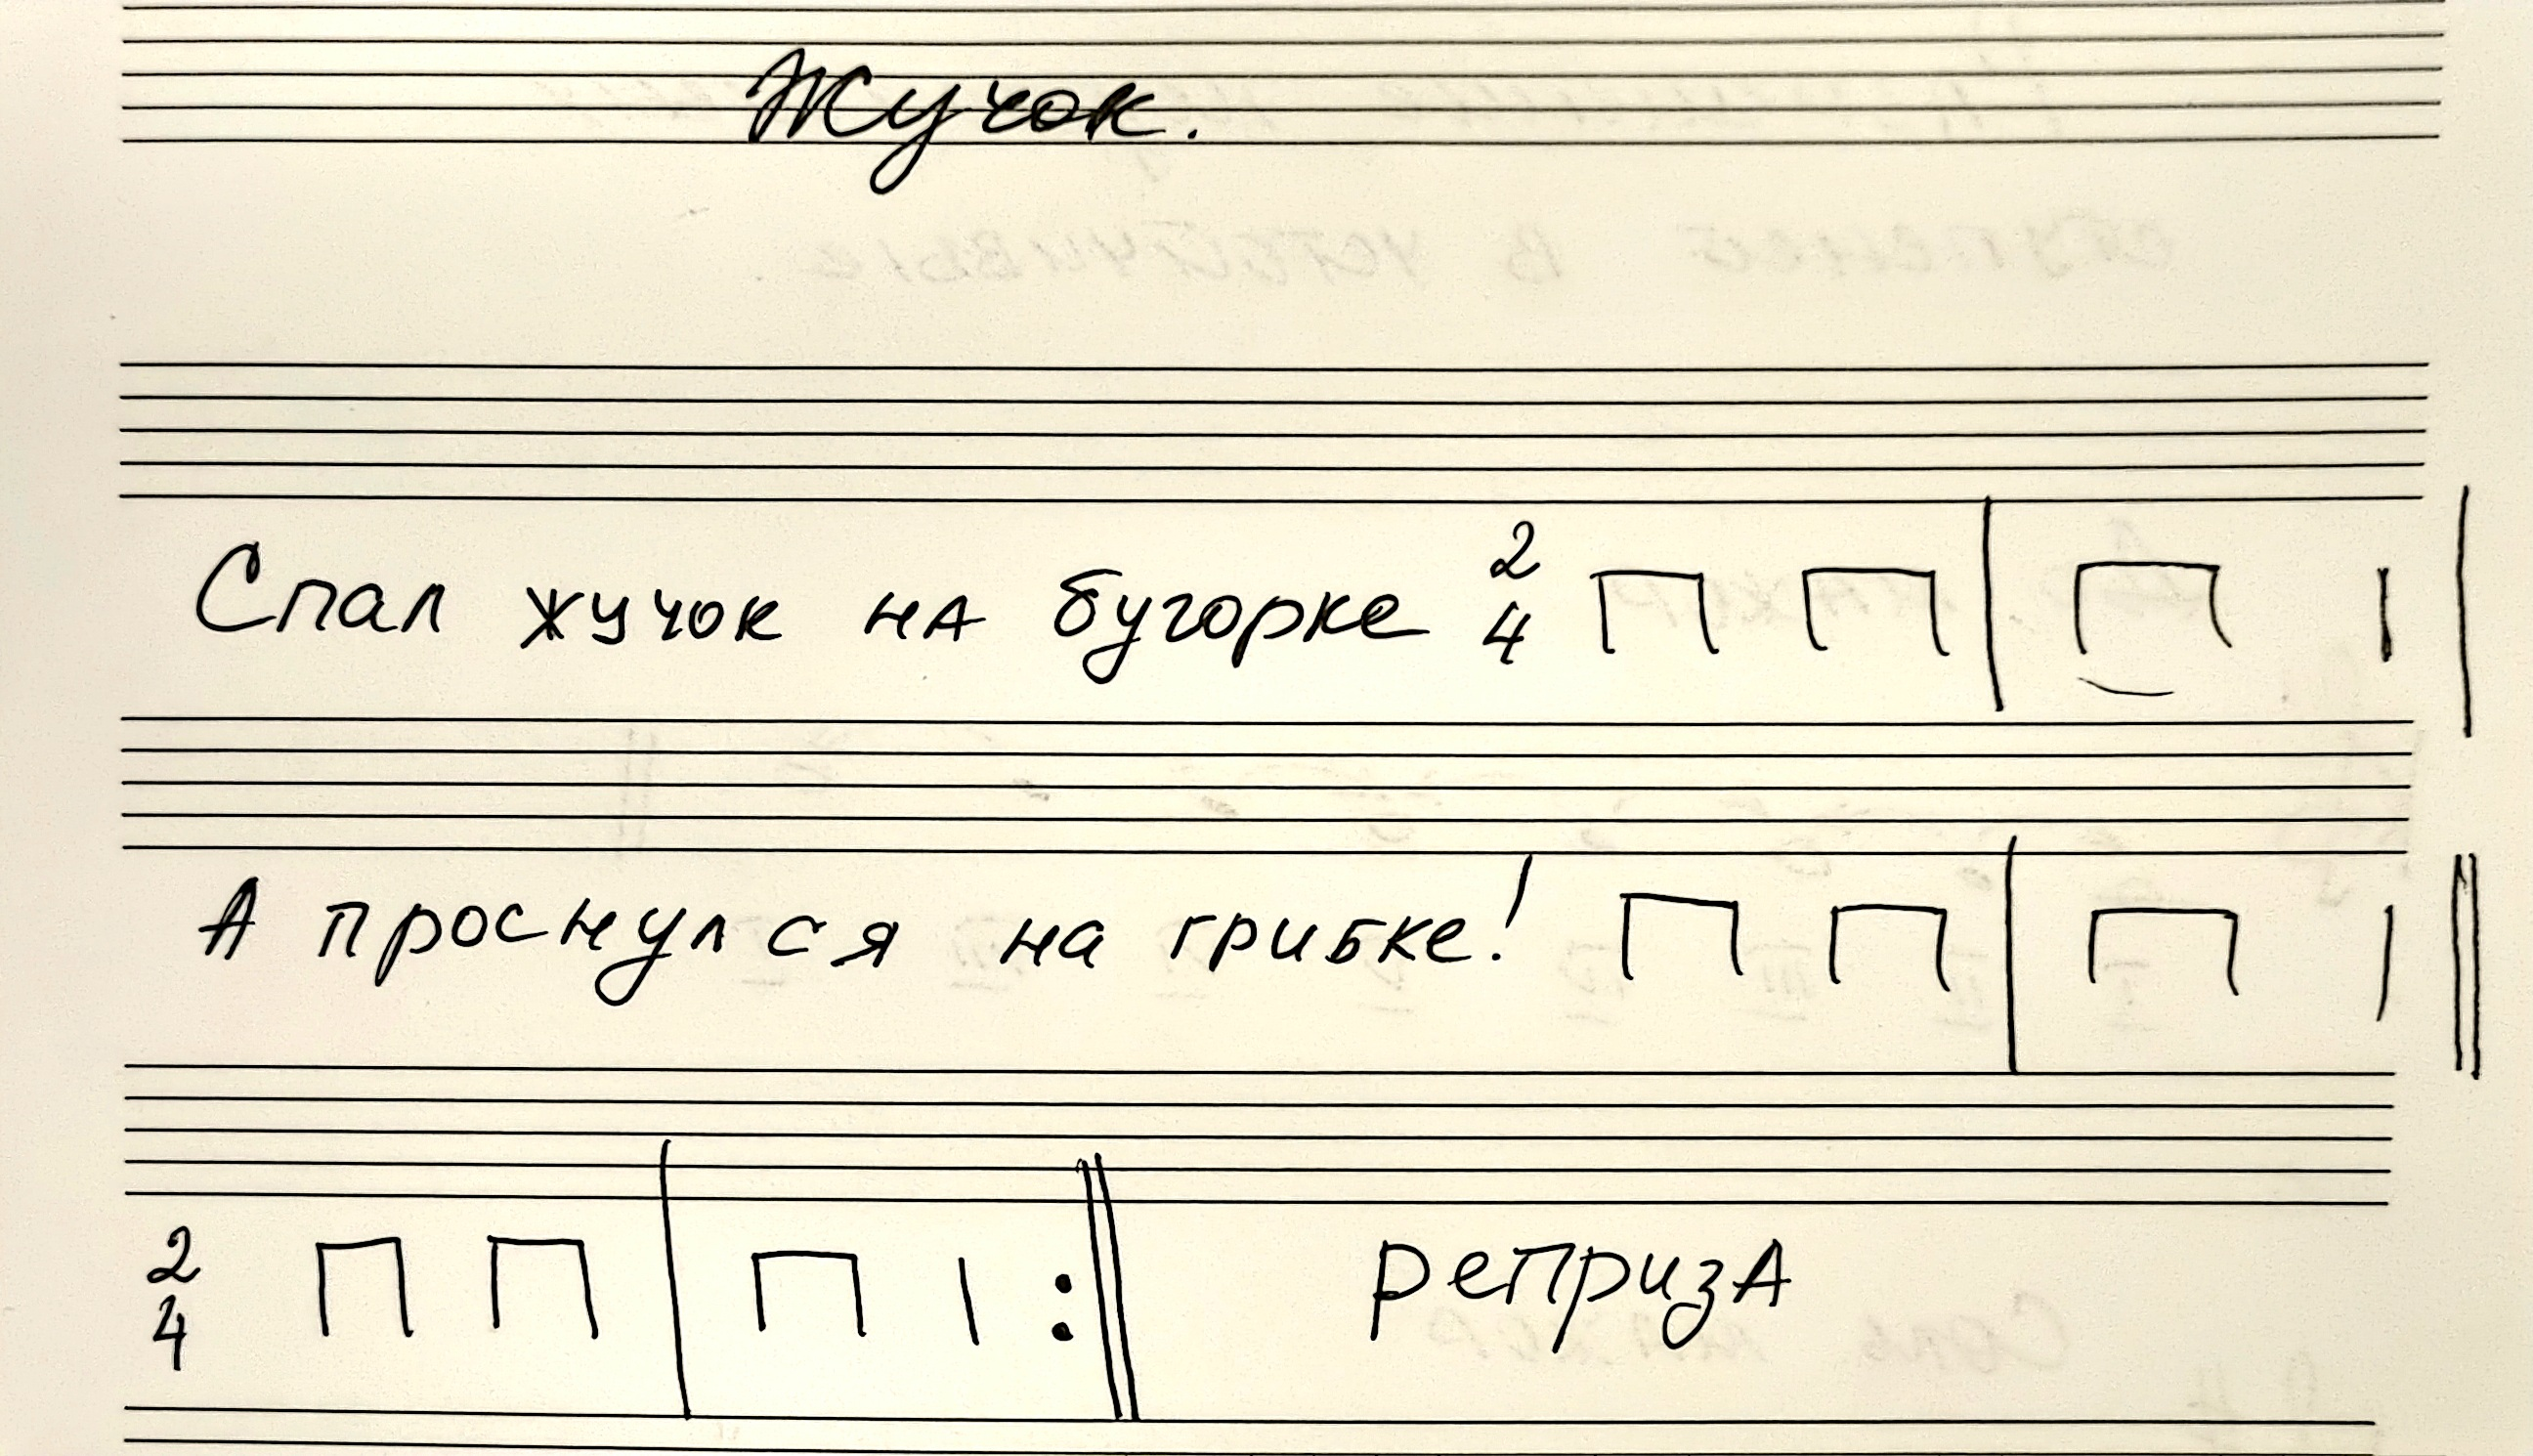 Жучок.
Спал жучок на бугорке 2/4 П П | П I |
А проснулся на грибке! П П | П I ||
2/4 П П | П I :|| реприза